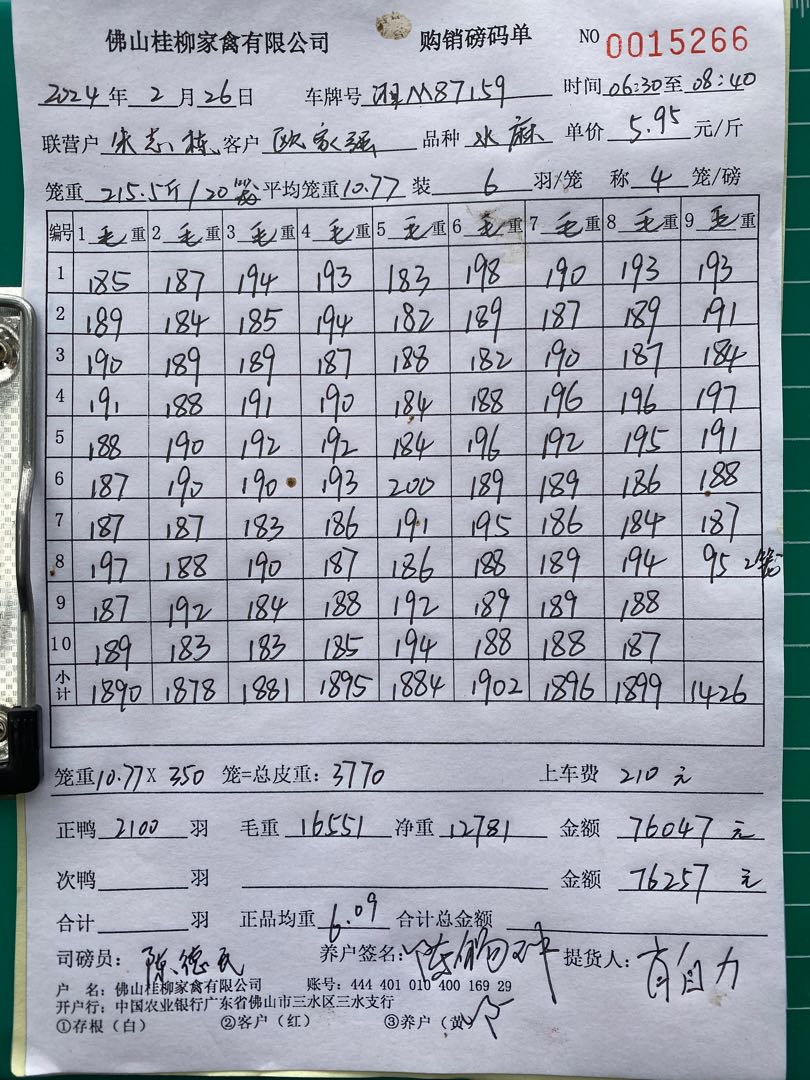 佛山桂柳家禽有限公司 购销磅码单 NO 0015266
2024年 2月 26日 车牌号 湘M87159 时间 06:30至 08:40
联营户 朱志栋 客户 欧家强 品种 水麻 单价 5.95 元/斤
笼重 215.5斤/20笼 平均笼重 10.77 装 6 羽/笼 称 4 笼/磅
编号 1 毛重 2 毛重 3 毛重 4 毛重 5 毛重 6 毛重 7 毛重 8 毛重 9 毛重
1 185 187 194 193 183 198 190 193 193
2 189 184 185 194 182 189 187 189 191
3 190 189 189 187 188 182 190 187 184
4 191 188 191 190 184 188 196 196 197
5 188 190 192 192 184 196 192 195 191
6 187 190 190 193 200 189 189 186 188
7 187 187 183 186 191 195 186 184 187
8 197 188 190 187 186 188 189 194 95 2笼
9 187 192 184 188 192 189 189 188
10 189 183 183 185 194 188 188 187
小计 1890 1878 1881 1895 1884 1902 1896 1899 1426
笼重 10.77 X 350 笼=总皮重: 3770 上车费 210 元
正鸭 2100 羽 毛重 16551 净重 12781 金额 76047 元
次鸭 羽 金额 76257 元
合计 羽 正品均重 6.09 合计总金额
司磅员: 陈德民 养户签名: 提货人:
户 名: 佛山桂柳家禽有限公司 账号: 444 401 010 400 169 29
开户行: 中国农业银行广东省佛山市三水区三水支行
①存根(白) ②客户(红) ③养户(黄